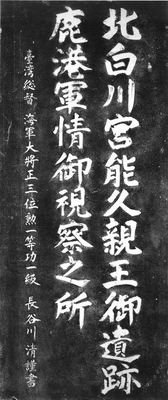 北白川宮能久親王御遺跡
鹿港軍情御視察之所
臺灣総督 海軍大將正三位勲一等功一級 長谷川 清謹書